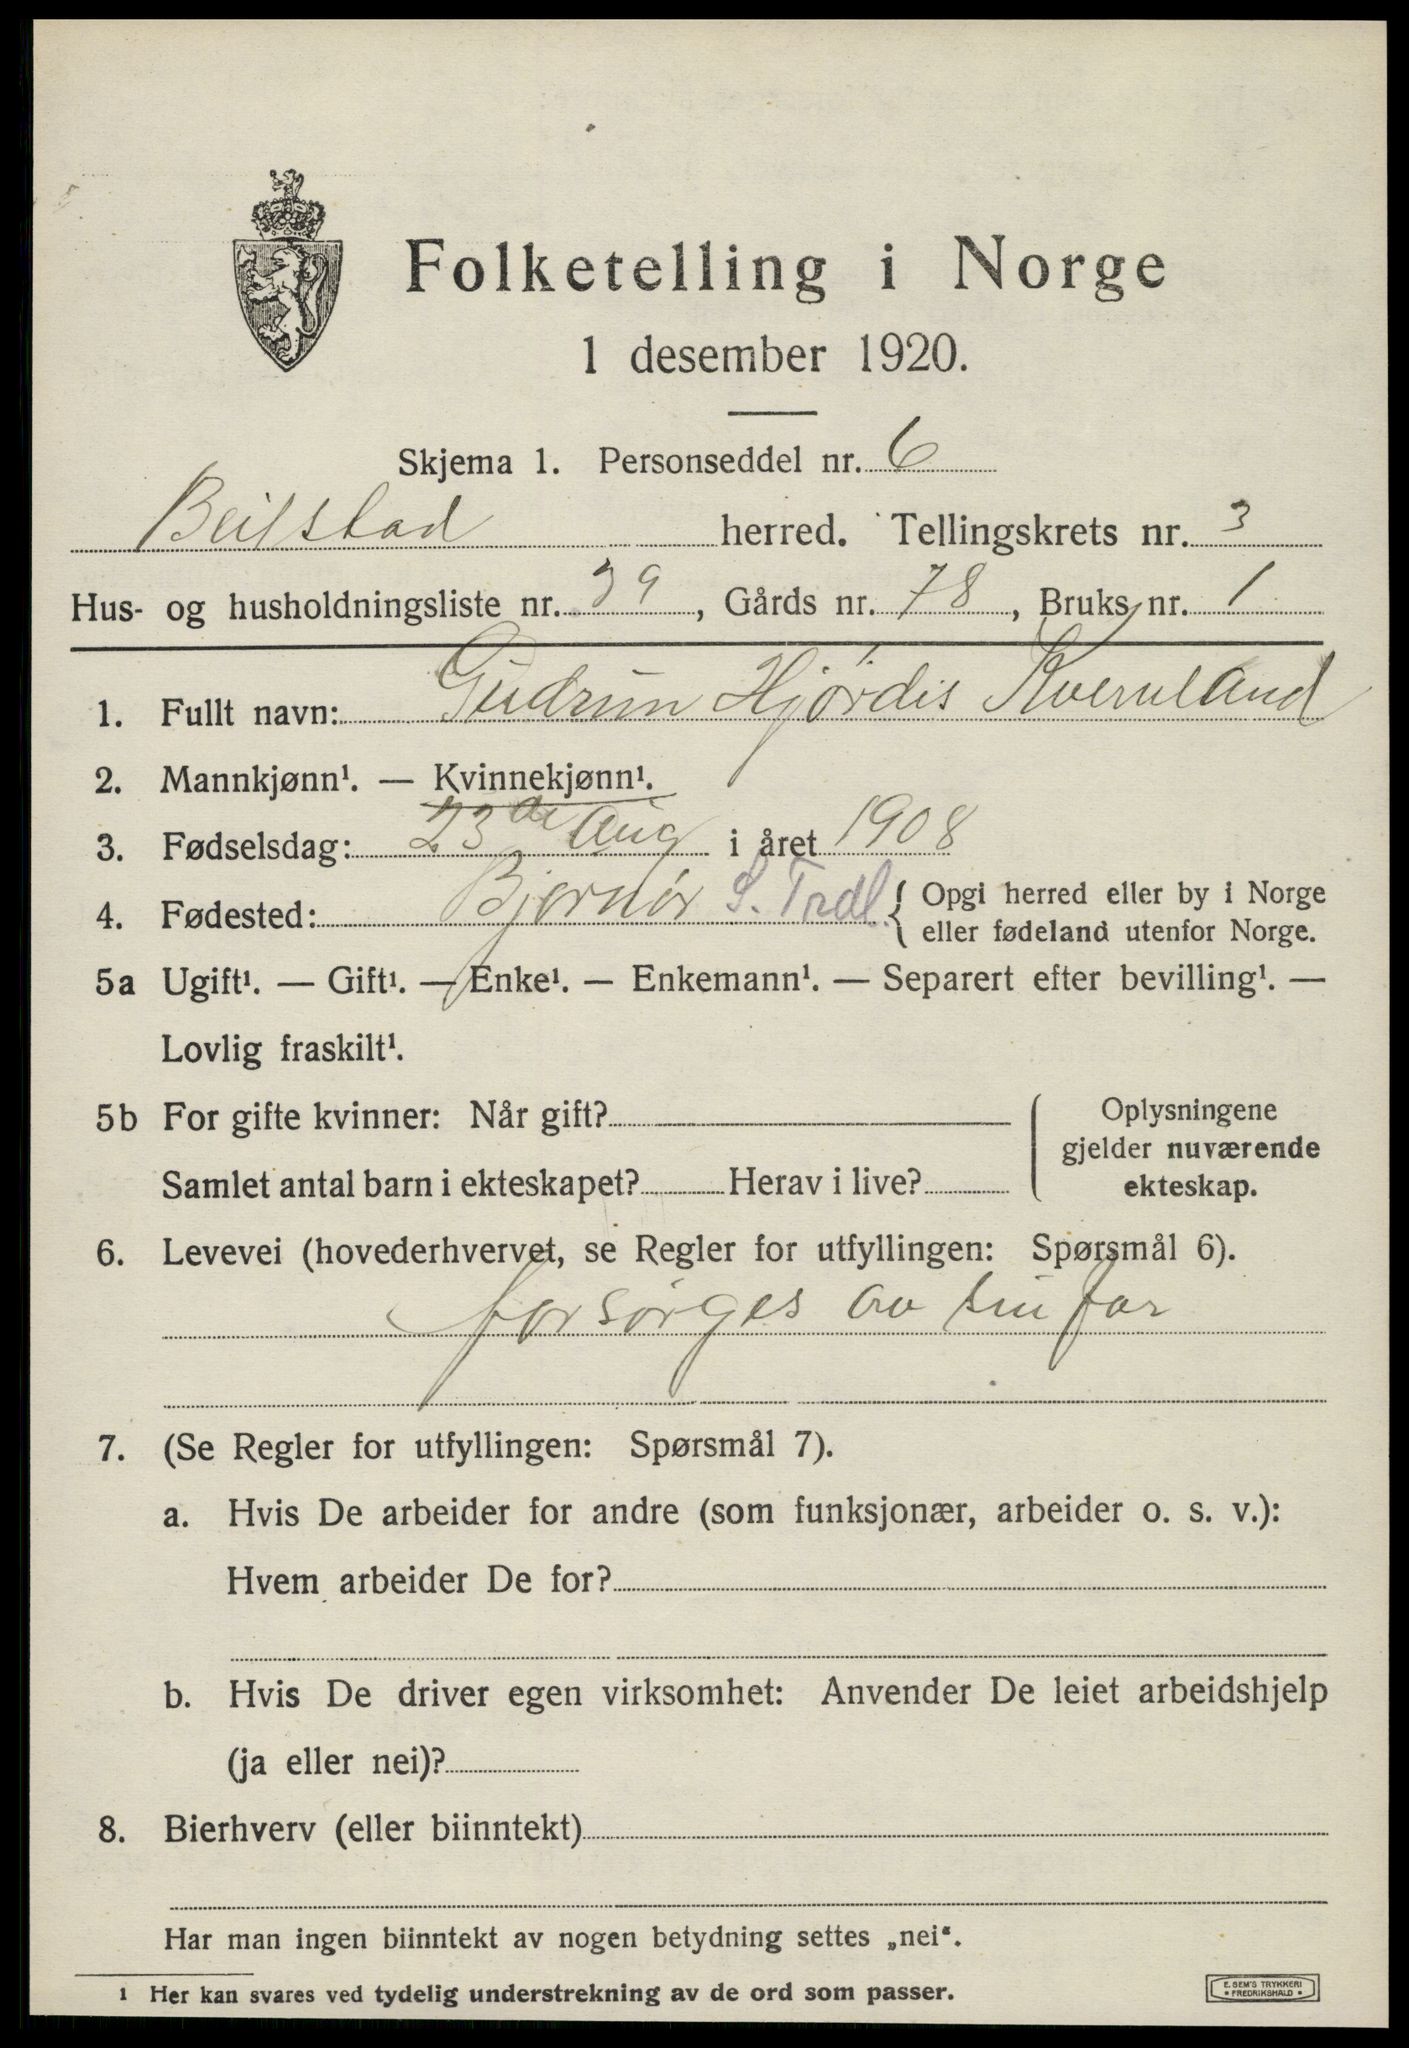 Folketelling i Norge
1 desember 1920.
Skjema 1. Personseddel nr. 6
Beitstad herred. Tellingskrets nr. 3
Hus- og husholdningsliste nr. 39, Gårds nr. 78, Bruks nr. 1
1. Fullt navn: Gudrun Hjørdis Kverneland
2. Mannkjønn¹. — Kvinnekjønn¹.
3. Fødselsdag: 23de Aug i året 1908
4. Fødested: Bjørnør S. Trdl. { Opgi herred eller by i Norge
eller fødeland utenfor Norge.
5a Ugift¹. — Gift¹. — Enke¹. — Enkemann¹. — Separert efter bevilling¹. —
Lovlig fraskilt¹.
5b For gifte kvinner: Når gift?
Samlet antal barn i ekteskapet? Herav i live?
Oplysningene
gjelder nuværende
ekteskap.
6. Levevei (hovederhvervet, se Regler for utfyllingen: Spørsmål 6).
forsørges av sin far
7. (Se Regler for utfyllingen: Spørsmål 7).
a. Hvis De arbeider for andre (som funksjonær, arbeider o. s. v.):
Hvem arbeider De for?
b. Hvis De driver egen virksomhet: Anvender De leiet arbeidshjelp
(ja eller nei)?
8. Bierhverv (eller biinntekt)
Har man ingen biinntekt av nogen betydning settes „nei“.
1 Her kan svares ved tydelig understrekning av de ord som passer.
E. SEM'S TRYKKERI
• FREDRIKSHALD •